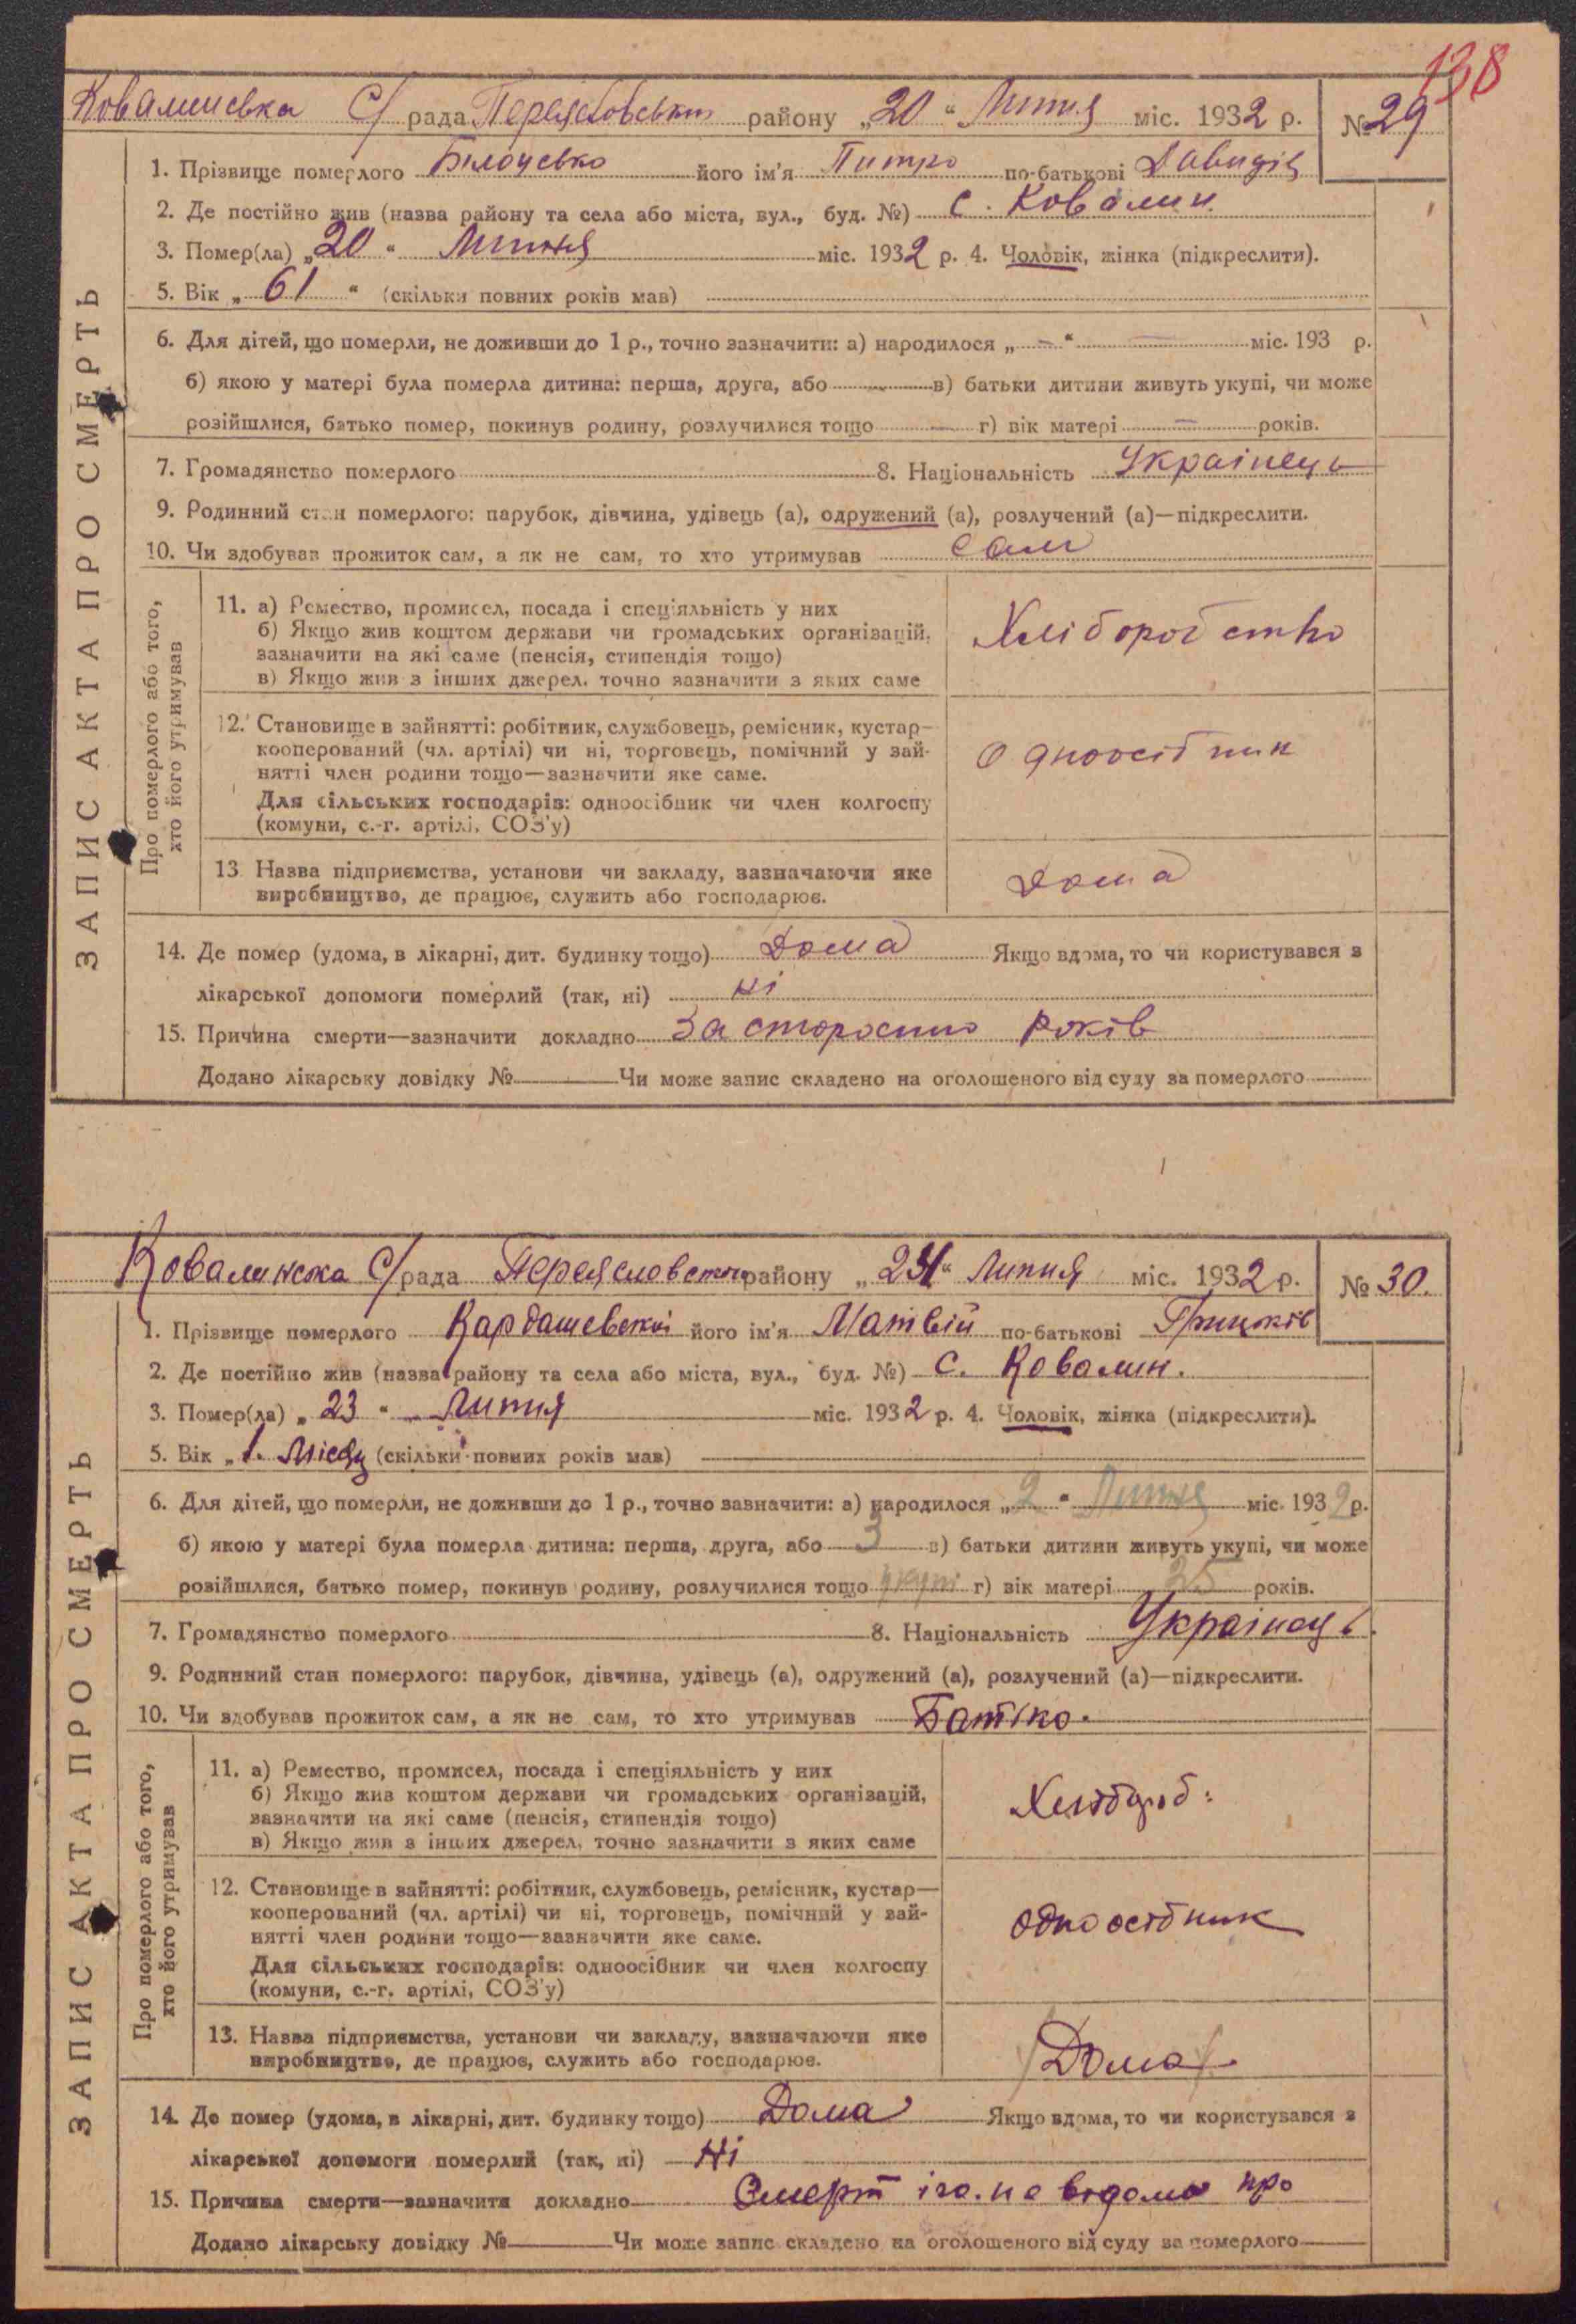 138
Ковалинська С/рада Переяславський району „20“ Липня міс. 1932 р. № 29
1. Прізвище померлого його ім'я Питро по-батькові Давидів
2. Де постійно жив (назва району та села або міста, вул., буд. №) с. Ковалин
3. Помер(ла) „20“ Липня міс. 1932 р. 4. Чоловік, жінка (підкреслити).
5. Вік „61“ (скільки повних років мав)
6. Для дітей, що померли, не доживши до 1 р., точно зазначити: а) народилося „—“ — міс. 193 р.
б) якою у матері була померла дитина: перша, друга, або — в) батьки дитини живуть укупі, чи може
розійшлися, батько помер, покинув родину, розлучилися тощо — г) вік матері — років.
7. Громадянство померлого 8. Національність Украінець
9. Родинний стан померлого: парубок, дівчина, удівець (а), одружений (а), розлучений (а)—підкреслити.
10. Чи здобував прожиток сам, а як не сам, то хто утримував сам
ЗАПИС АКТА ПРО СМЕРТЬ
Про померлого або того,
хто його утримував
11. а) Ремество, промисел, посада і спеціяльність у них
б) Якщо жив коштом держави чи громадських організацій,
зазначити на які саме (пенсія, стипендія тощо)
в) Якщо жив з інших джерел, точно зазначити з яких саме
Хліборобство
12. Становище в зайнятті: робітник, службовець, ремісник, кустар—
кооперований (чл. артілі) чи ні, торговець, помічний у зай-
нятті член родини тощо—зазначити яке саме.
Для сільських господарів: одноосібник чи член колгоспу
(комуни, с.-г. артілі, СОЗ'у)
Одноосібник
13. Назва підприємства, установи чи закладу, зазначаючи яке
виробництво, де працює, служить або господарює.
Дома
14. Де помер (удома, в лікарні, дит. будинку тощо) Дома Якщо вдома, то чи користувався з
лікарської допомоги померлий (так, ні) ні
15. Причина смерти—зазначити докладно За старостю років
Додано лікарську довідку № Чи може запис складено на оголошеного від суду за померлого
Ковалинска С/рада Переясловского району „24“ Липня міс. 1932 р. № 30.
1. Прізвище померлого Кардашевскої його ім'я Матвій по-батькові Грицків
2. Де постійно жив (назва району та села або міста, вул., буд. №) с. Ковалин.
3. Помер(ла) „23“ Липня міс. 1932 р. 4. Чоловік, жінка (підкреслити).
5. Вік „1. Місяц (скільки повних років мав)
6. Для дітей, що померли, не доживши до 1 р., точно зазначити: а) народилося „2“ Липня міс. 1932 р.
б) якою у матері була померла дитина: перша, друга, або 3 в) батьки дитини живуть укупі, чи може
розійшлися, батько помер, покинув родину, розлучилися тощо укупі г) вік матері 25 років.
7. Громадянство померлого 8. Національність Украінець.
9. Родинний стан померлого: парубок, дівчина, удівець (а), одружений (а), розлучений (а)—підкреслити.
10. Чи здобував прожиток сам, а як не сам, то хто утримував Батько.
ЗАПИС АКТА ПРО СМЕРТЬ
Про померлого або того,
хто його утримував
11. а) Ремество, промисел, посада і спеціяльність у них
б) Якщо жив коштом держави чи громадських організацій,
зазначити на які саме (пенсія, стипендія тощо)
в) Якщо жив з інших джерел, точно зазначити з яких саме
Хлібороб:
12. Становище в зайнятті: робітник, службовець, ремісник, кустар—
кооперований (чл. артілі) чи ні, торговець, помічний у зай-
нятті член родини тощо—зазначити яке саме.
Для сільських господарів: одноосібник чи член колгоспу
(комуни, с.-г. артілі, СОЗ'у)
одноосібник
13. Назва підприємства, установи чи закладу, зазначаючи яке
виробництво, де працює, служить або господарює.
Дома
14. Де помер (удома, в лікарні, дит. будинку тощо) Дома Якщо вдома, то чи користувався з
лікарської допомоги померлий (так, ні) Ні
15. Причина смерти—зазначити докладно Смерт іго. не відомо про
Додано лікарську довідку № Чи може запис складено на оголошеного від суду за померлого